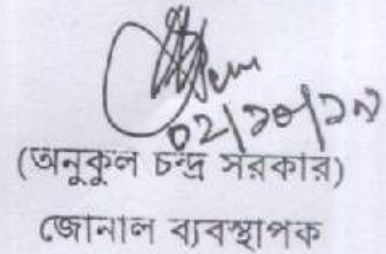 ০২/১০/১৯
(অনুকুল চন্দ্র সরকার)
জোনাল ব্যবস্থাপক